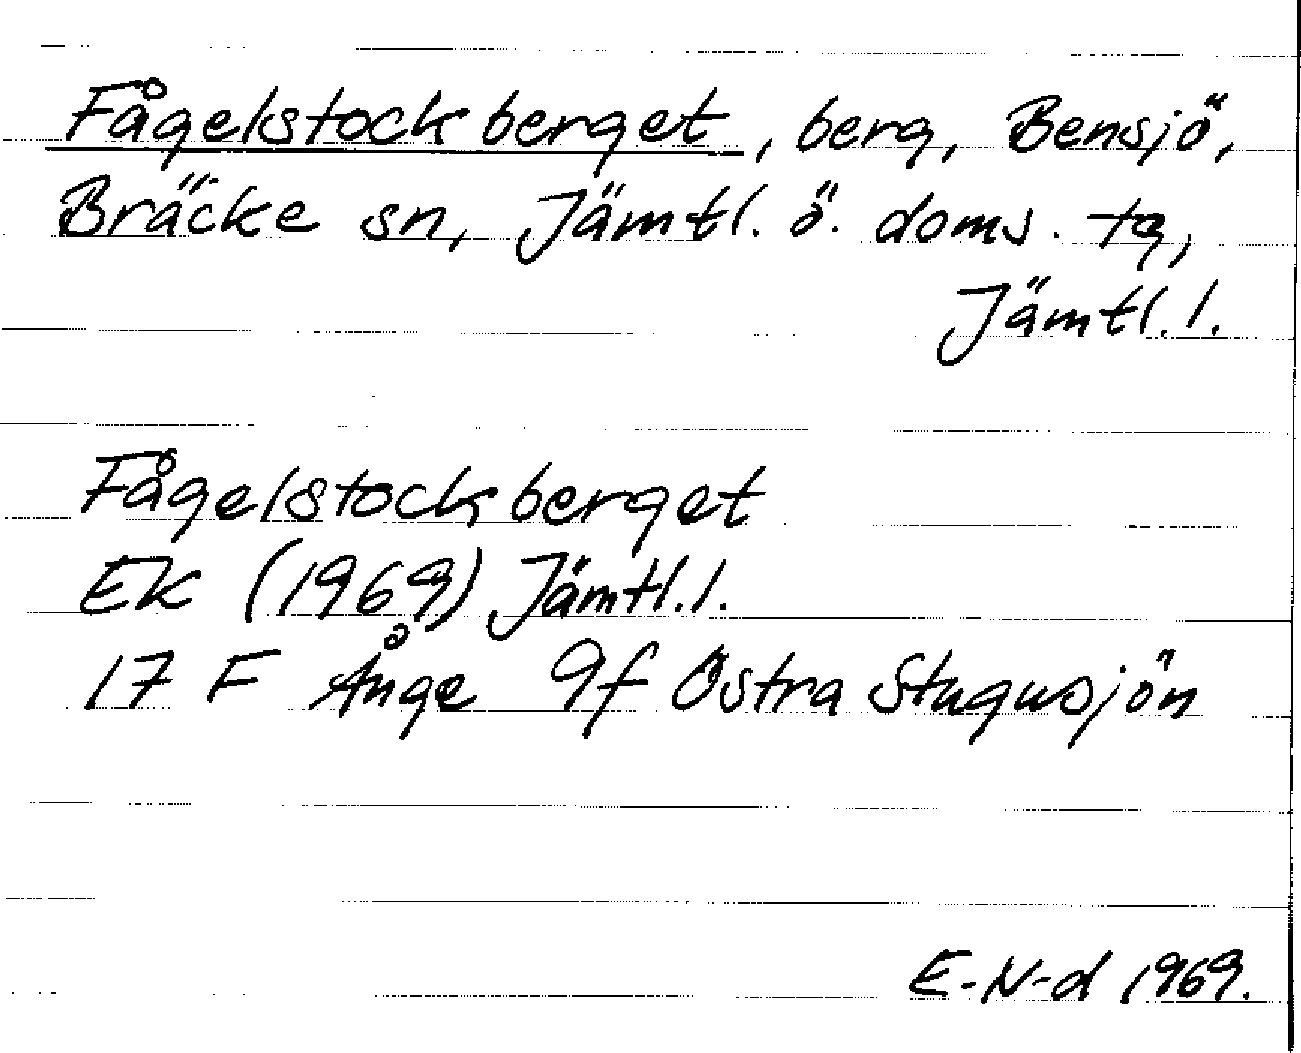 Fågelstockberget, berg, Bensjö,
Bräcke sn, Jämtl. ö. doms. tg,
Jämtl. l.
Fågelstockberget
EK (1969) Jämtl. l.
17 F Ånge 9f Östra Stugusjön
E-N-d 1969.